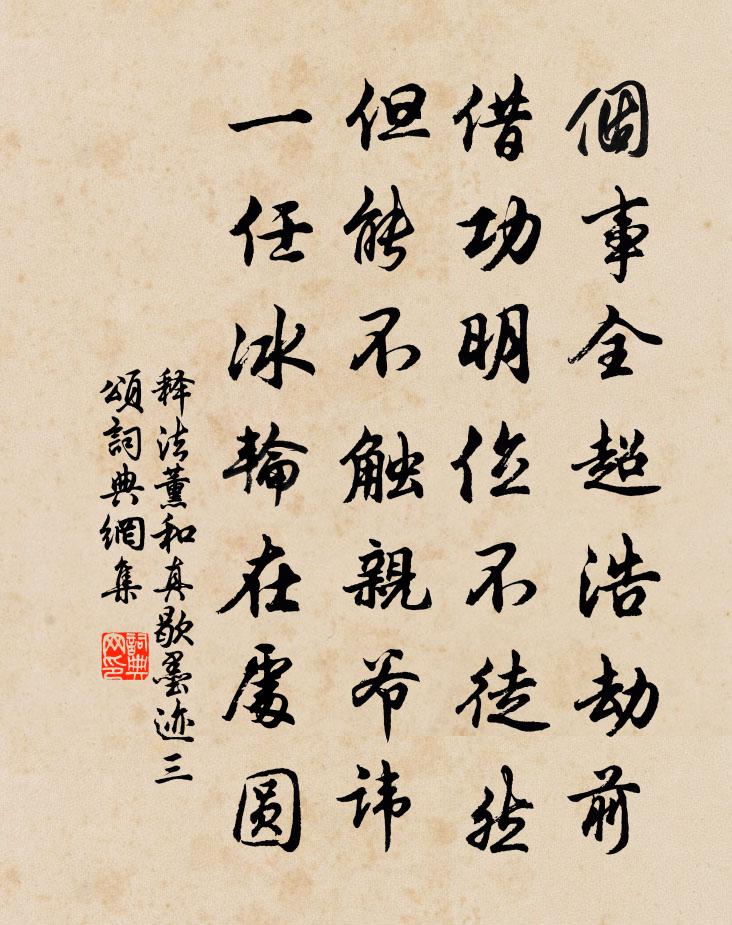 個事全超浩劫前
借功明位不徒然
但能不触親爷讳
一任冰輪在處圆
释法薰和真歇墨迹三
頌詞典網集
詞典网印